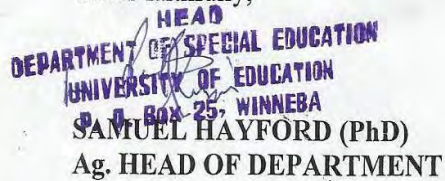 HEAD
DEPARTMENT OF SPECIAL EDUCATION
UNIVERSITY OF EDUCATION
P. O. BOX 25, WINNEBA
SAMUEL HAYFORD (PhD)
Ag. HEAD OF DEPARTMENT